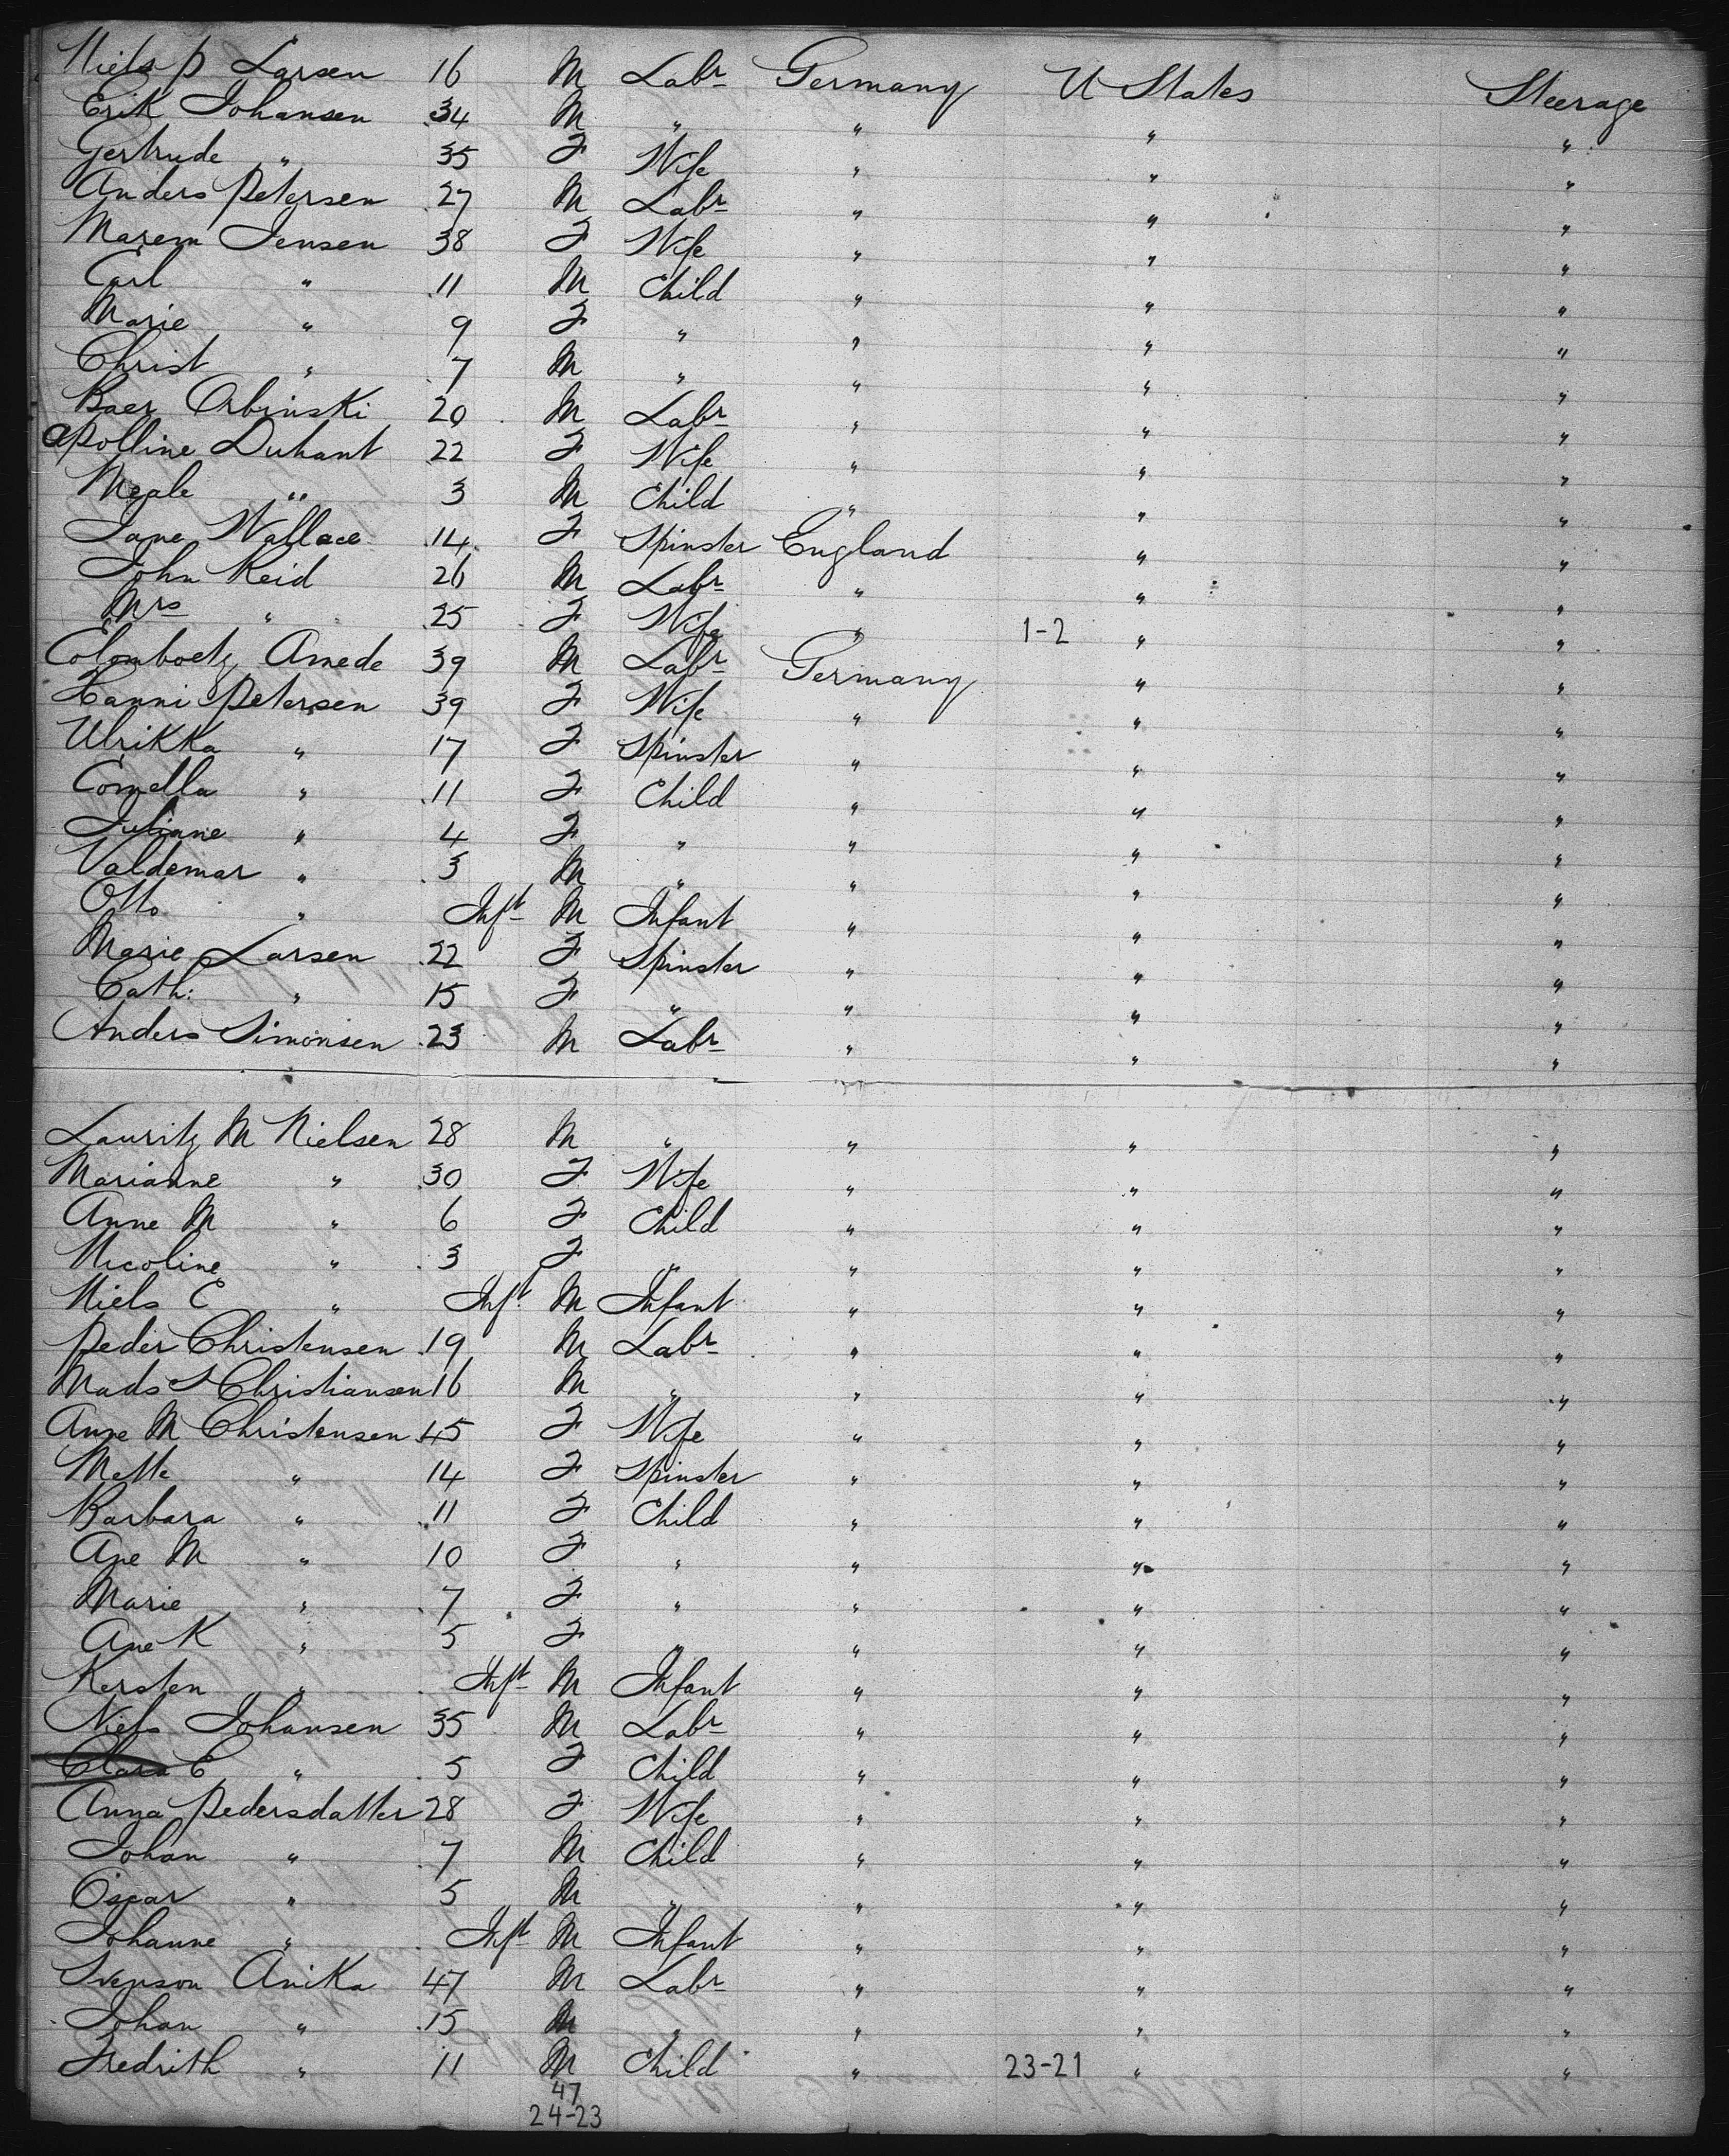 Niels P Larsen 16 M Labr Germany U States Steerage
Erik Johansen 34 M " " " "
Gertrude " 35 F Wife " " "
Anders Petersen 27 M Labr " " "
Maren Jensen 38 F Wife " " "
Carl " 11 M Child " " "
Marie " 9 F " " " "
Christ " 7 M " " " "
Baer Orbinski 20 M Labr " " "
Apolline Duhant 22 F Wife " " "
Meale " 3 M Child " " "
Jane Wallace 14 F Spinster England " "
John Reid 26 M Labr " " "
Mrs " 25 F Wife " 1-2 " "
Colomboetz Amede 39 M Labr Germany " "
Hanni Petersen 39 F Wife " " "
Ulrikka " 17 F Spinster " " "
Cornella " 11 F Child " " "
Juliane " 4 F " " " "
Valdemar " 3 M " " " "
Otto " Inft M Infant " " "
Marie Larsen 22 F Spinster " " "
Cath: " 15 F " " " "
Anders Simonsen 23 M Labr " " "
Lauritz M Nielsen 28 M " " " "
Marianne " 30 F Wife " " "
Anne M " 6 F Child " " "
Nicoline " 3 F " " " "
Niels C " Inft M Infant " " "
Peder Christensen 19 M Labr " " "
Mads S Christiansen 16 M " " " "
Ane M Christensen 45 F Wife " " "
Mette " 14 F Spinster " " "
Barbara " 11 F Child " " "
Ane M " 10 F " " " "
Marie " 7 F " " " "
Ane K " 5 F " " " "
Kersten " Inft M Infant " " "
Niels Johansen 35 M Labr " " "
Clara E " 5 F Child " " "
Anna Pedersdatter 28 F Wife " " "
Johan " 7 M Child " " "
Oscar " 5 M " " " "
Johanne " Inft M Infant " " "
Svenson Anika 47 M Labr " " "
Johan " 15 M " " " "
Fredrith " 11 M Child " 23-21 " "
47
24-23